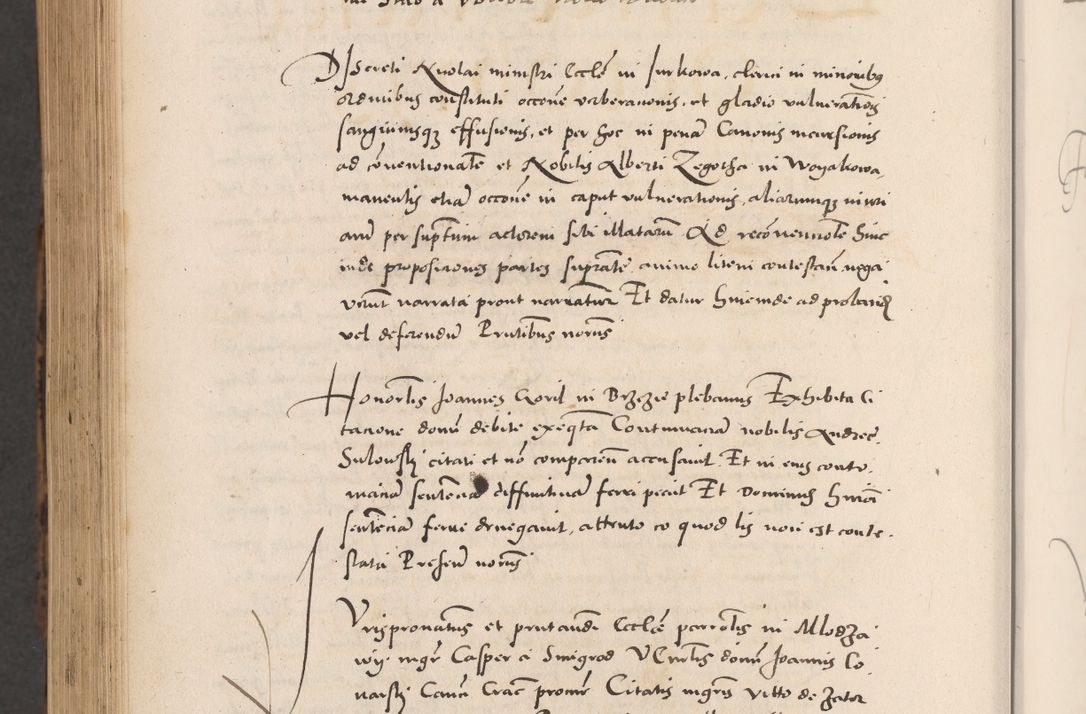 Discreti Nicolai ministri Eccle in Jurkowa, clerici in minoribg
ordinibus constituti occone verberacionis, et gladio vulneracionis
sanguinisqz effusionis, et per hoc in penam Canonis incursionis
ad conventionale et Nobilis Alberti Zegotha in Woyakowa
manentis etiam occone in caput vulnerationis, aliarumqz iniuri
arum per suptum actorem sibi illatarum Ad reconventiole hinc
inde proposiciones partes suprate animo litem contestan nega
verunt narrata prout narrantur Et datur hincinde ad proband
vel deferendum Pntibus notariis
Honorlis Joannes Goril in Brzezie plebanus Exhibita Ci
tacione domi debite exeqta Contumaciam nobilis Andree
Sulowski citati et non comparen accusavit Et in eius contu
maciam sententiam diffinitivam ferri peciit Et Dominus huiusmodi
sentenciam ferre denegavit, attento eo quod lis non est conte
stata Presen notariis
Jurispronatus et pntandi Eccle parrolis in Mlodza
wy mgr Casper a Smigrod VCurlis domi Joannis Co
narski Canci Crac procur Citatis mgris Vitto de Zator